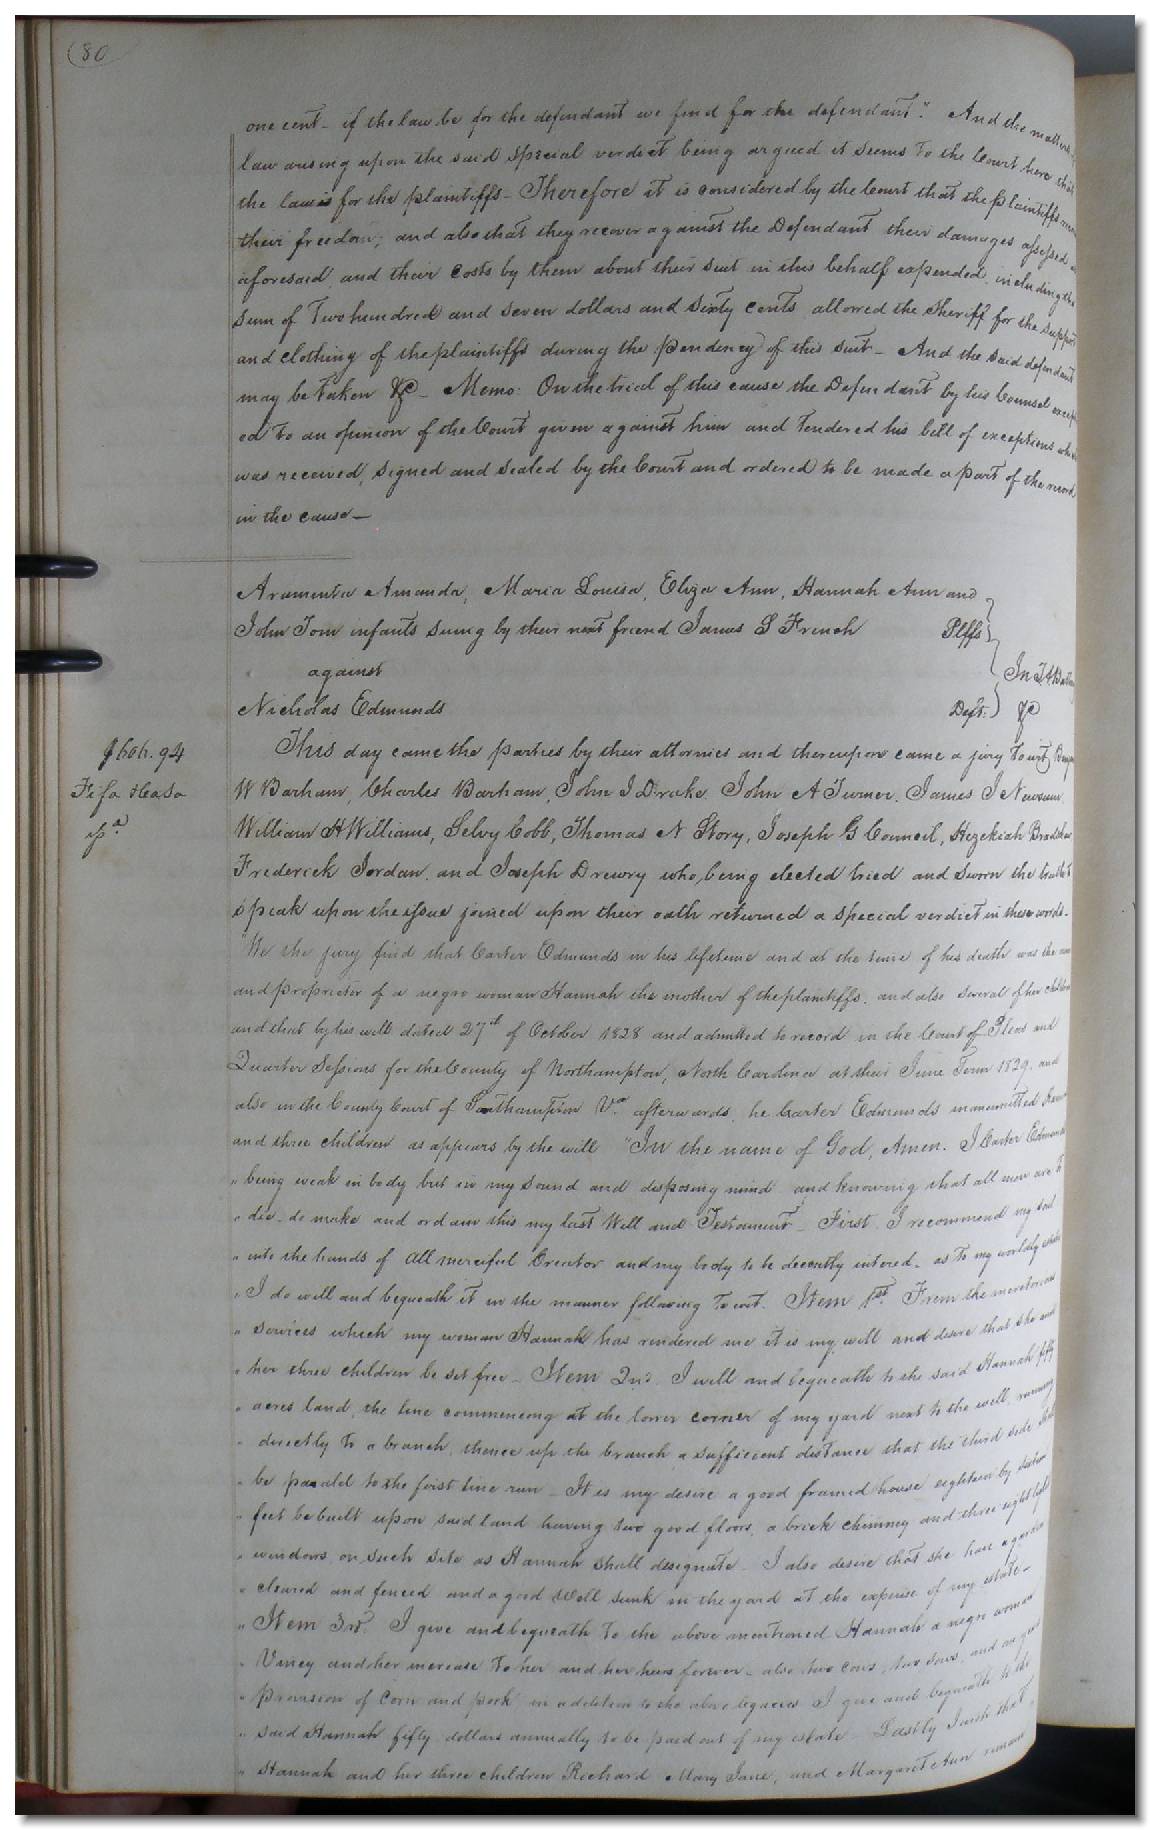 (80
one cent - if the law be for the defendant we find for the defendant." And the matters of
law arising upon the said special verdict being argued it seems to the Court here that
the law is for the plaintiffs - Therefore it is considered by the Court that the plaintiffs
their freedom; and also that they recover against the Defendant their damages assessed
aforesaid, and their costs by them about their suit in this behalf expended, including the
sum of Two hundred and seven dollars and sixty cents allowed the sheriff for the support
and clothing of the plaintiffs during the pendency of this suit - And the said defendant
may be taken &c - Memo: On the trial of this cause the Defendant by his Counsel except
ed to an opinion of the Court given against him and tendered his bill of exceptions which
was received, signed and sealed by the Court and ordered to be made a part of the record
in the cause -
Araminta Amanda, Maria Louisa, Eliza Ann, Hannah Ann and
John Tom infants suing by their next friend James S French Plffs
against In
Nicholas Edmunds Deft. &c
This day came the parties by their attornies and thereupon came a jury to wit,
$606.94
W Barham, Charles Barham, John J Drake, John A Turner, James J Newsum
Fifa
William H Williams, Selvy Cobb, Thomas N Story, Joseph G Council, Hezekiah Bradshaw
Frederick Jordan, and Joseph Drewry who, being elected tried and sworn the truth to
speak upon the issue joined upon their oath returned a special verdict in these words -
"We the jury find that Carter Edmunds in his lifetime and at the time of his death was the
and proprietor of a negro woman Hannah the mother of the plaintiffs, and also several of her children
and that by his will dated 27th of October 1828 and admitted to record in the Court of Pleas and
Quarter Sessions for the County of Northampton, North Carolina at their June Term 1829, and
also in the County Court of Southampton Va. afterwards, he Carter Edmunds manumitted
and three children as appears by the will "In the name of God, Amen. I Carter Edmunds
" being weak in body but in my sound and disposing mind and knowing that all men are to
" die - do make and ordain this my last Will and Testament - First I recommend my soul
" into the hands of all merciful Creator and my body to be decently intered - as to my worldly estate
" I do will and bequeath it in the manner following to wit. Item 1st. From the meritorious
" services which my woman Hannah has rendered me it is my will and desire that she and
" her three children be set free - Item 2nd. I will and bequeath to the said Hannah fifty
" acres land, the line commencing at the lower corner of my yard next to the well, running
" directly to a branch, thence up the branch a sufficient distance that the third side shall
" be paralel to the first line run - It is my desire a good framed house eighteen by sixteen
" feet be built upon said land having two good floors, a brick chimney and three eight light
" windows, on such site as Hannah shall designate. I also desire that she have a garden
" cleared and fenced and a good well sunk in the yard at the expense of my estate -
" Item 3rd. I give and bequeath to the above mentioned Hannah a negro woman
" Viney and her increase to her and her heirs forever - also two cows, two sows, and
" provision of corn and pork in addition to the above legacies I give and bequeath to the
" said Hannah fifty dollars annually to be paid out of my estate - Lastly I wish that
" Hannah and her three children Richard Mary Jane, and Margaret Ann remain